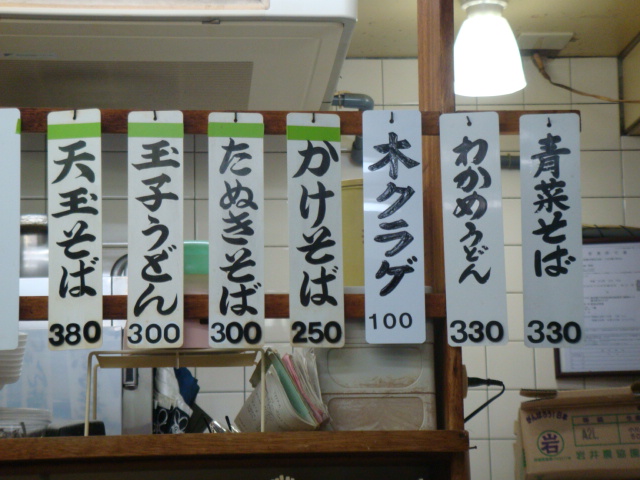 天玉そば
380
玉子うどん
300
たぬきそば
300
かけそば
250
木クラゲ
100
わかめうどん
330
青菜そば
330
岩
A2L